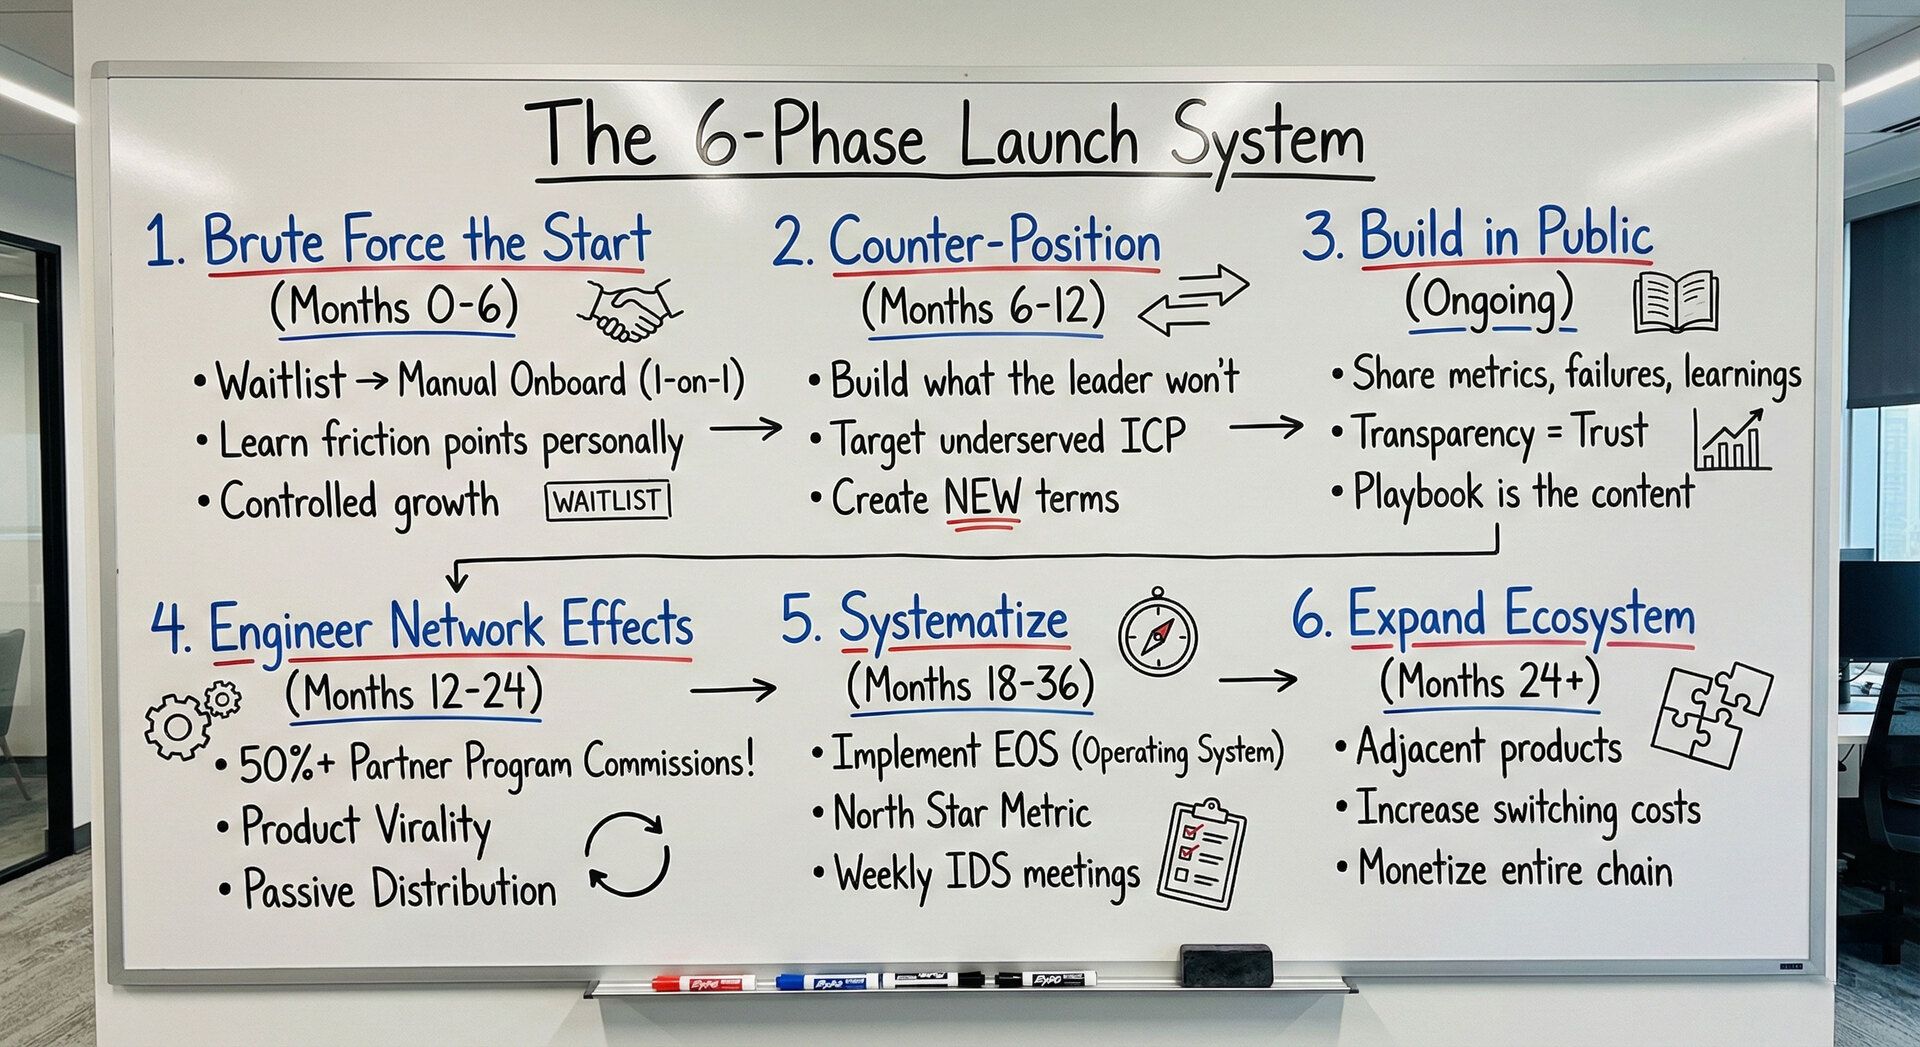 The 6-Phase Launch System
1. Brute Force the Start
(Months 0-6)
• Waitlist → Manual Onboard (1-on-1)
• Learn friction points personally
• Controlled growth
WAITLIST
2. Counter-Position
(Months 6-12)
• Build what the leader won't
• Target underserved ICP
• Create NEW terms
3. Build in Public
(Ongoing)
• Share metrics, failures, learnings
• Transparency = Trust
• Playbook is the content
4. Engineer Network Effects
(Months 12-24)
• 50%+ Partner Program Commissions!
• Product Virality
• Passive Distribution
5. Systematize
(Months 18-36)
• Implement EOS (Operating System)
• North Star Metric
• Weekly IDS meetings
6. Expand Ecosystem
(Months 24+)
• Adjacent products
• Increase switching costs
• Monetize entire chain
EXPO
EXPO
EXPO